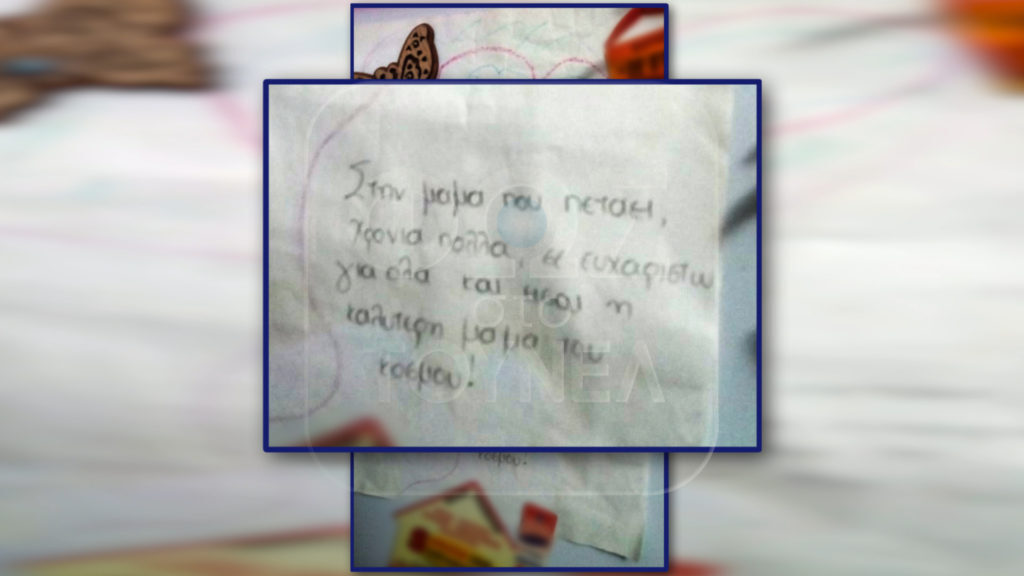 Στην μαμα που πεταει,
Χρονια πολλα, σε ευχαριστω
για ολα και εισαι η
καλυτερη μαμα του
κοσμου!
ΦΩΣ
στο
ΤΟΥΝΕΛ
κοσμου!